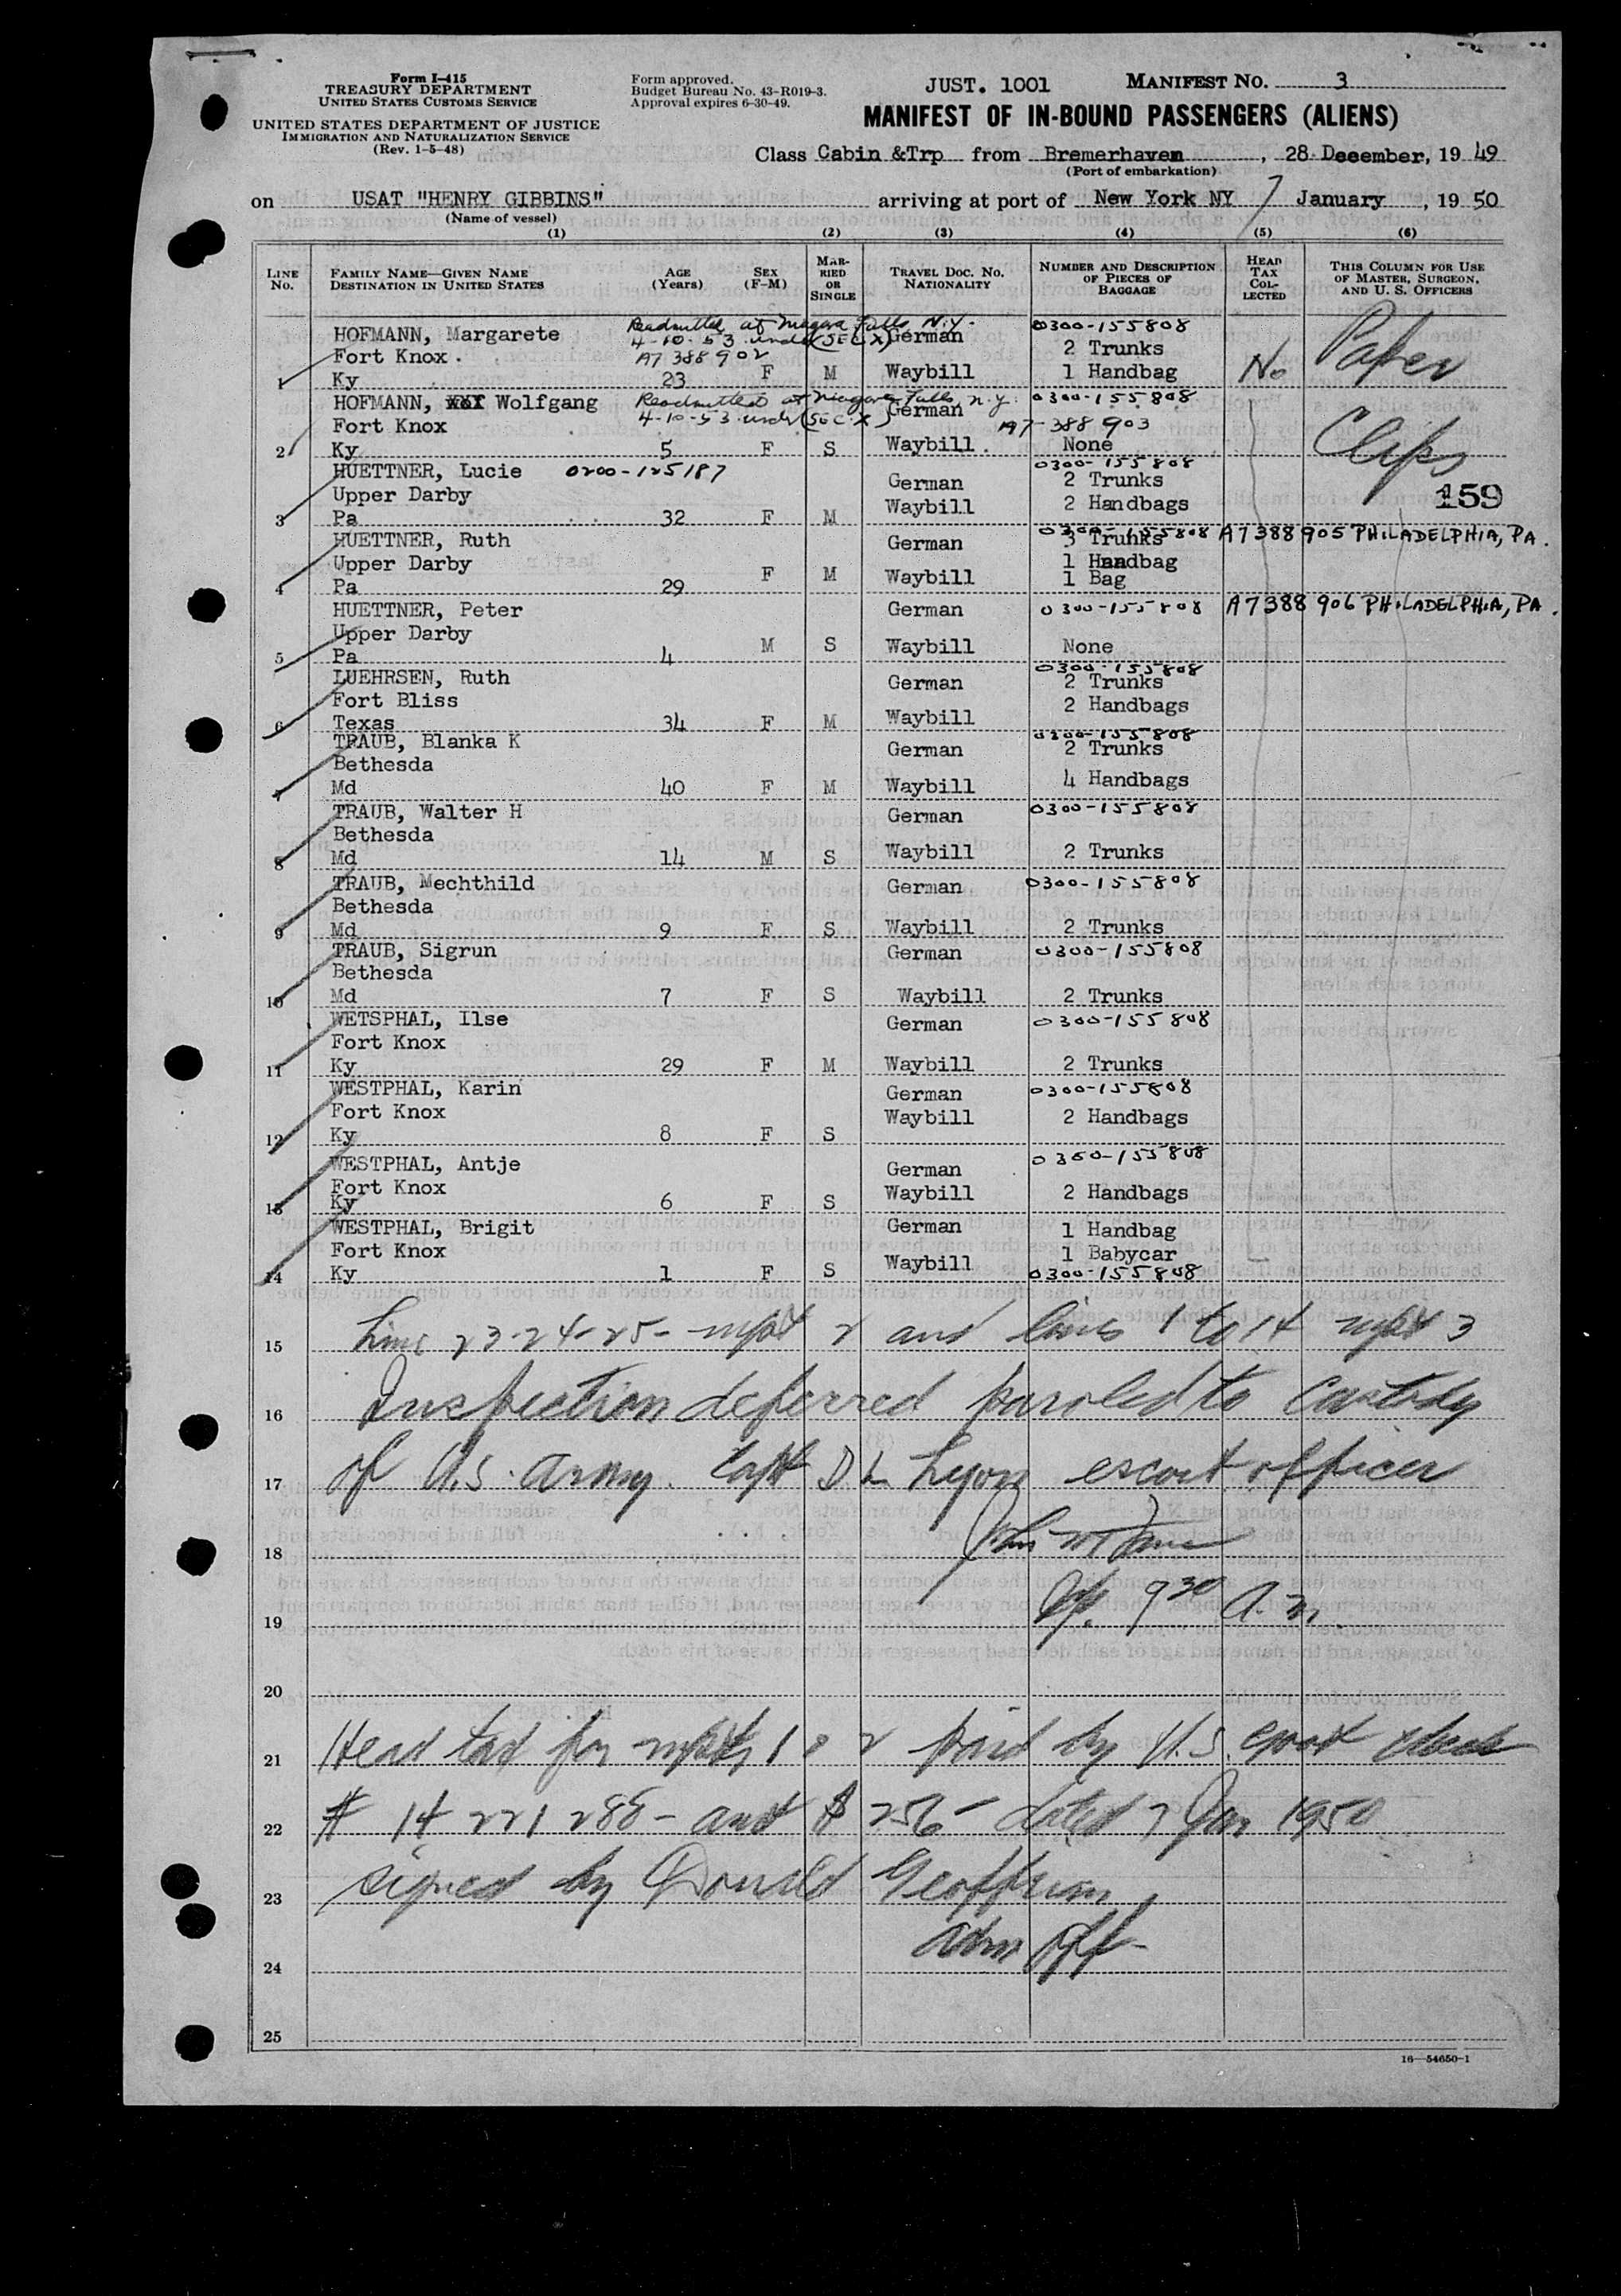 Form I-415
TREASURY DEPARTMENT
UNITED STATES CUSTOMS SERVICE
UNITED STATES DEPARTMENT OF JUSTICE
IMMIGRATION AND NATURALIZATION SERVICE
(Rev. 1-5-48)
Form approved.
Budget Bureau No. 43-R019-3.
Approval expires 6-30-49.
JUST. 1001 MANIFEST NO. 3
MANIFEST OF IN-BOUND PASSENGERS (ALIENS)
Class Cabin &Trp from Bremerhaven, 28 Deeember, 19 49
(Port of embarkation)
on USAT "HENRY GIBBINS" arriving at port of New York NY 7 January, 19 50
(Name of vessel)
(1) (2) (3) (4) (5) (6)
LINE No. FAMILY NAME—GIVEN NAME DESTINATION IN UNITED STATES AGE (Years) SEX (F-M) MARRIED OR SINGLE TRAVEL DOC. NO. NATIONALITY NUMBER AND DESCRIPTION OF PIECES OF BAGGAGE HEAD TAX COLLECTED THIS COLUMN FOR USE OF MASTER, SURGEON, AND U. S. OFFICERS
HOFMANN, Margarete Readmitted at Niagara Falls, N.Y. German 0300-155808
Fort Knox 4-10-53 under (SEC X) 2 Trunks
A7 388 902
1 Ky 23 F M Waybill 1 Handbag No Paper
HOFMANN, XXX Wolfgang Readmitted at Niagara Falls, N.Y. German 0300-155808
Fort Knox 4-10-53 under (SEC. X) A7-388 903
2 Ky 5 F S Waybill. None Clips
HUETTNER, Lucie 0200-125187 German 0300-155808
2 Trunks
159
Upper Darby
3 Pa 32 F M Waybill 2 Handbags
HUETTNER, Ruth German 0300-155808 A7388905 PHILADELPHIA, PA.
3 Trunks
Upper Darby 1 Handbag
4 Pa 29 F M Waybill 1 Bag
HUETTNER, Peter German 0300-155808 A7388 906 PHILADELPHIA, PA.
Upper Darby
5 Pa 4 M S Waybill None
LUEHRSEN, Ruth German 0300-155808
2 Trunks
Fort Bliss
6 Texas 34 F M Waybill 2 Handbags
TRAUB, Blanka K German 0300-155808
2 Trunks
Bethesda
7 Md 40 F M Waybill 4 Handbags
TRAUB, Walter H German 0300-155808
Bethesda
8 Md 14 M S Waybill 2 Trunks
TRAUB, Mechthild German 0300-155808
Bethesda
9 Md 9 F S Waybill 2 Trunks
TRAUB, Sigrun German 0300-155808
Bethesda
10 Md 7 F S Waybill 2 Trunks
WETSPHAL, Ilse German 0300-155808
Fort Knox
11 Ky 29 F M Waybill 2 Trunks
WESTPHAL, Karin German 0300-155808
Fort Knox Waybill 2 Handbags
12 Ky 8 F S
WESTPHAL, Antje German 0300-155808
Fort Knox
13 Ky 6 F S Waybill 2 Handbags
WESTPHAL, Brigit German 1 Handbag
Fort Knox 1 Babycar
14 Ky 1 F S Waybill 0300-155808
15 Line 23-24-25- mfst 2 and lines 1 to 14 mfst 3
16 Inspection deferred paroled to Custody
17 of U.S. Army. Capt D L Lyon escort officer
18
19 9 30 A.M.
20
21 Head tax for mfsts 1 & 2 paid by U.S. govt check
22 # 14 221 288- and $ 256- dated 7 Jan 1950
23 signed by Donald
24 Adm Off-
25
16—54650-1